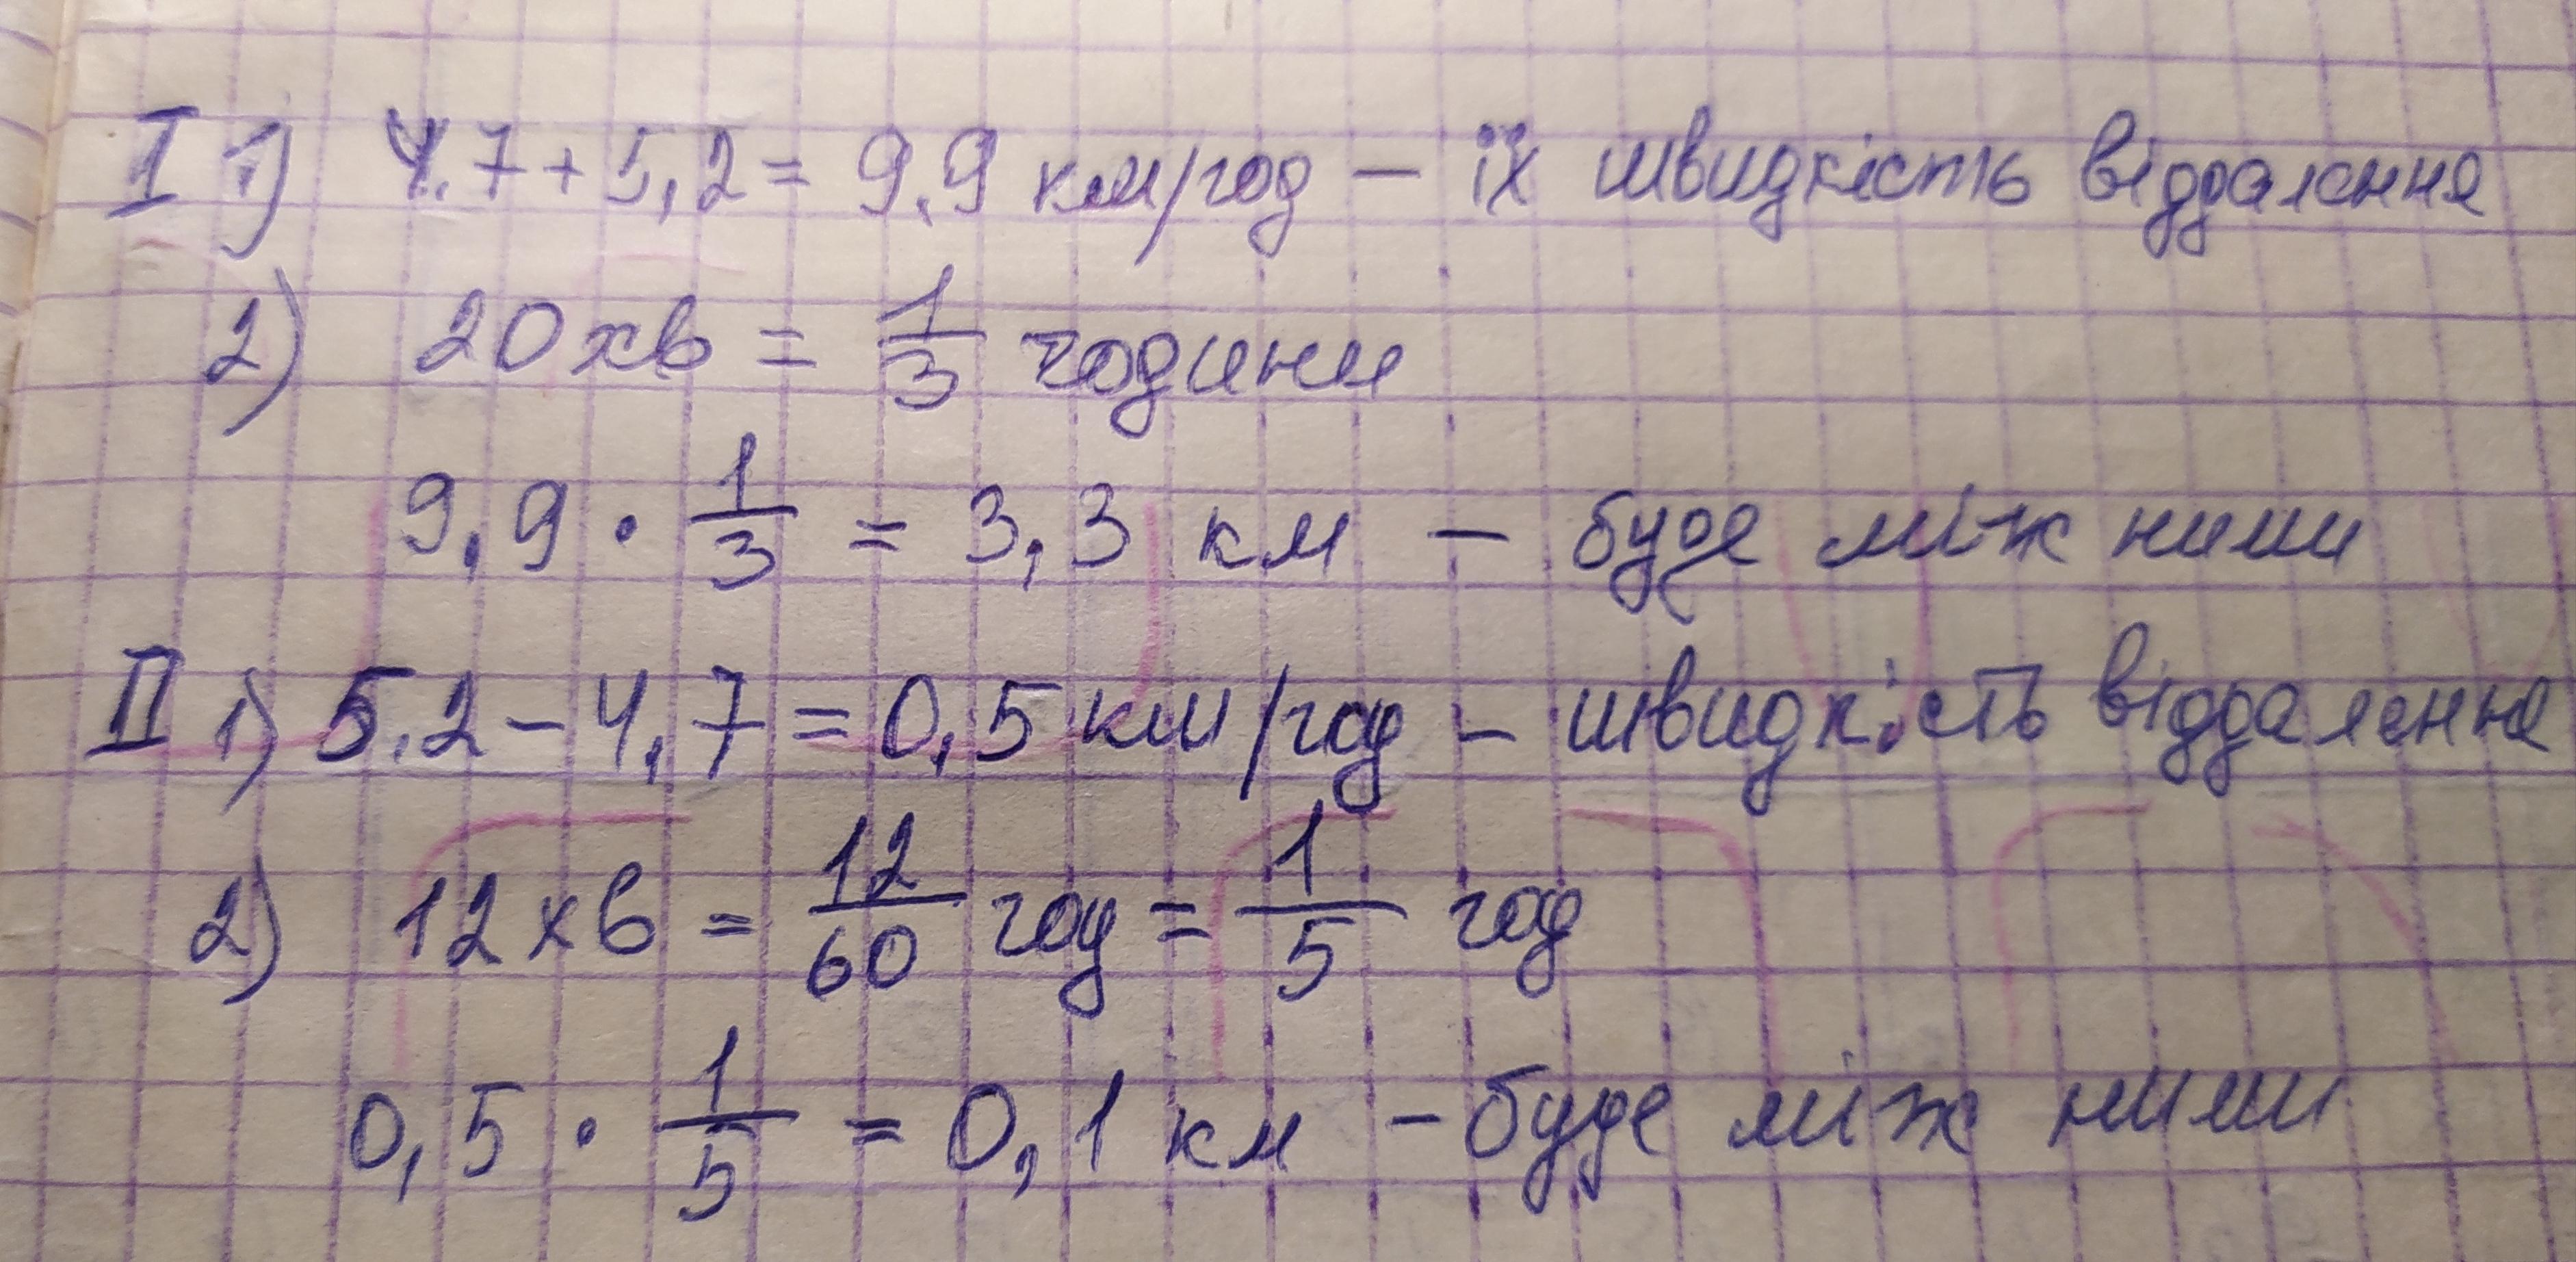 I 1) 4,7 + 5,2 = 9,9 км/год – їх швидкість віддалення
2) 20 хв = 1/3 години
9,9 · 1/3 = 3,3 км – буде між ними
II 1) 5,2 – 4,7 = 0,5 км/год – швидкість віддалення
2) 12 хв = 12/60 год = 1/5 год
0,5 · 1/5 = 0,1 км – буде між ними